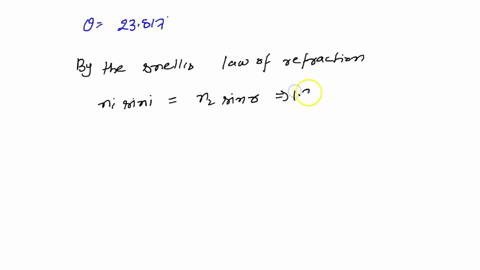 θ = 23.817°
By the snell's law of refraction
n₁ sin i = n₂ sin r ⇒ 1.